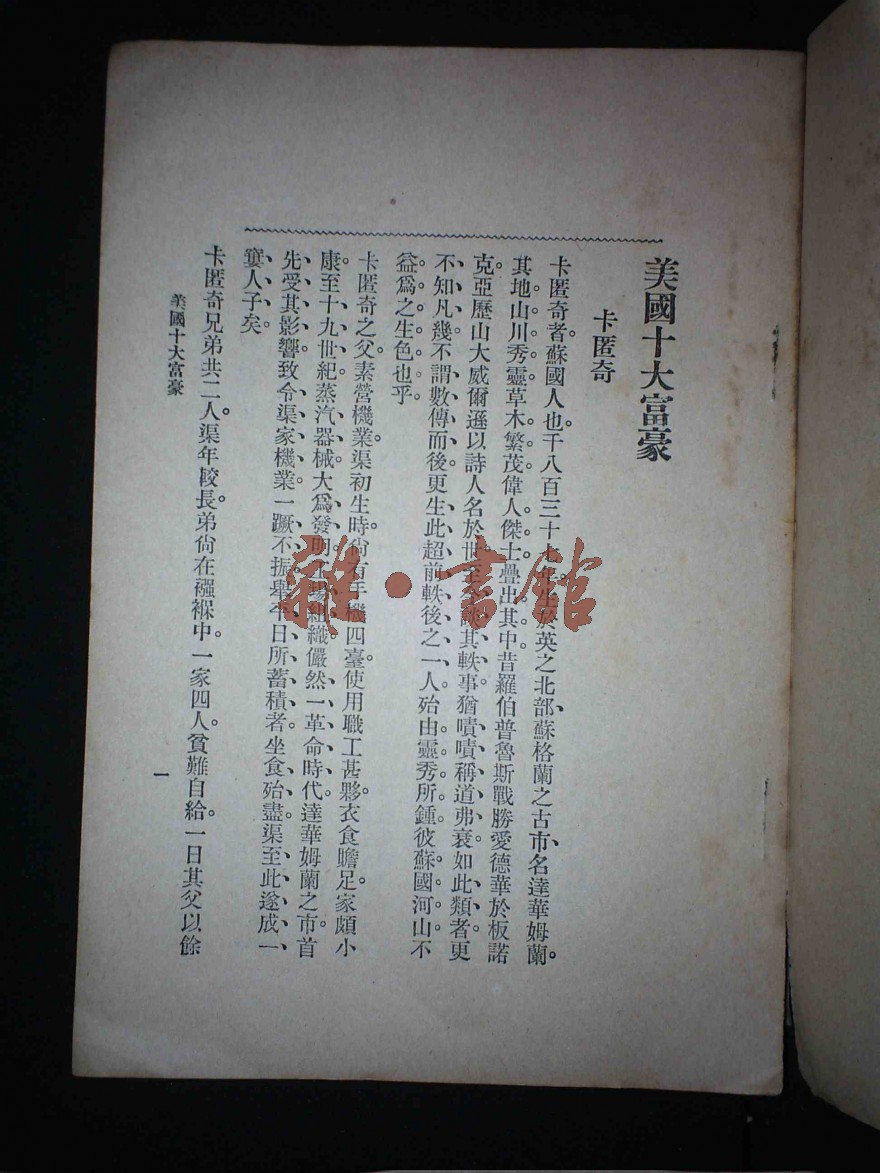 美國十大富豪
卡匿奇
卡匿奇者。蘇國人也。千八百三十七年。生於英之北部、蘇格蘭之古市、名達華姆蘭。
其地山川秀靈。草木繁茂。偉人傑士。疊出其中。昔羅伯普魯斯戰勝愛德華於板諾
克。亞歷山大威爾遜以詩人名於世。至今談其軼事、猶嘖嘖稱道弗衰、如此類者、更
不知凡幾、不謂數傳而後、更生此超前軼後之一人、殆由靈秀所鍾。彼蘇國河山。不
益爲之生色也乎。
卡匿奇之父。素營機業。渠初生時。尙有手機四臺。使用職工甚夥。衣食贍足。家頗小
康。至十九世紀。蒸汽器械。大爲發明、工場組織、儼然一革命時代、達華姆蘭之市、首
先受其影響、致令渠家機業、一蹶不振、舉平日所蓄積者、坐食殆盡、渠至此遂成一
寠人子矣。
卡匿奇兄弟共二人。渠年較長。弟尙在襁褓中。一家四人。貧難自給。一日其父以餘
美國十大富豪
一
雜·書館